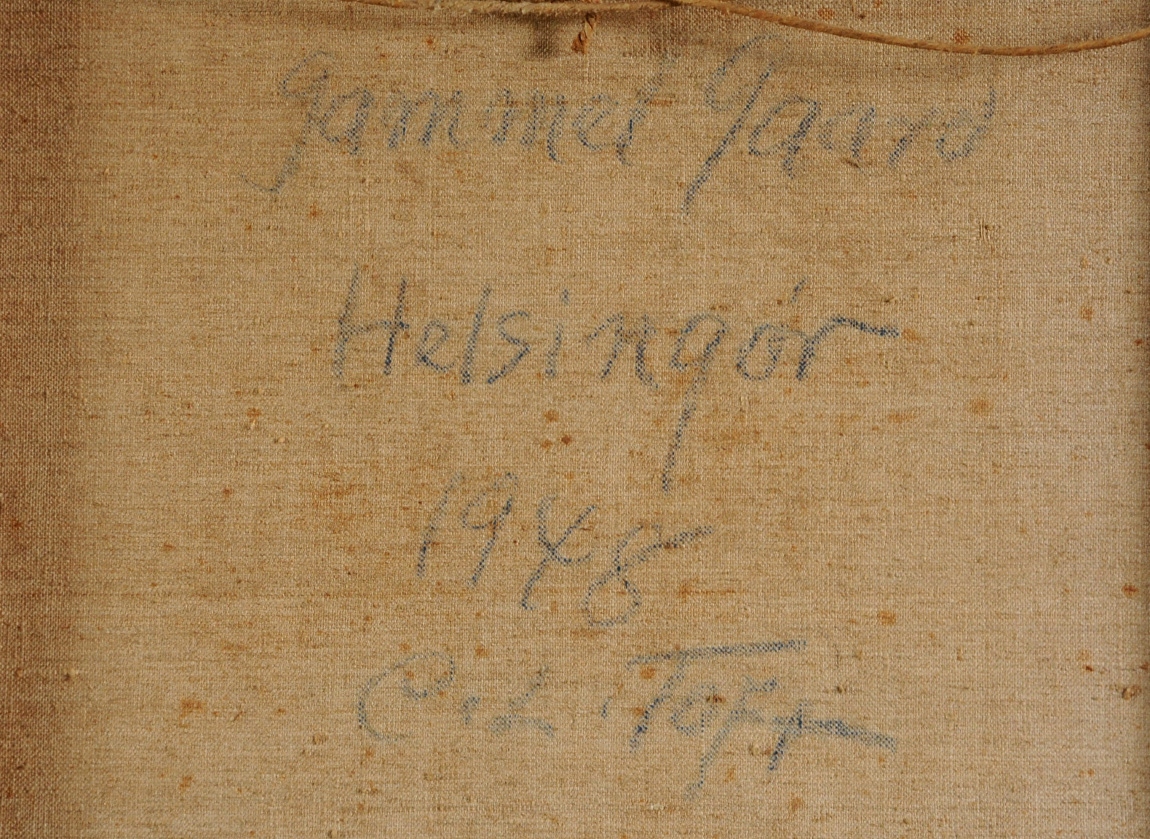 Gammel Gaard
Helsingør
1948
C. L. Toft